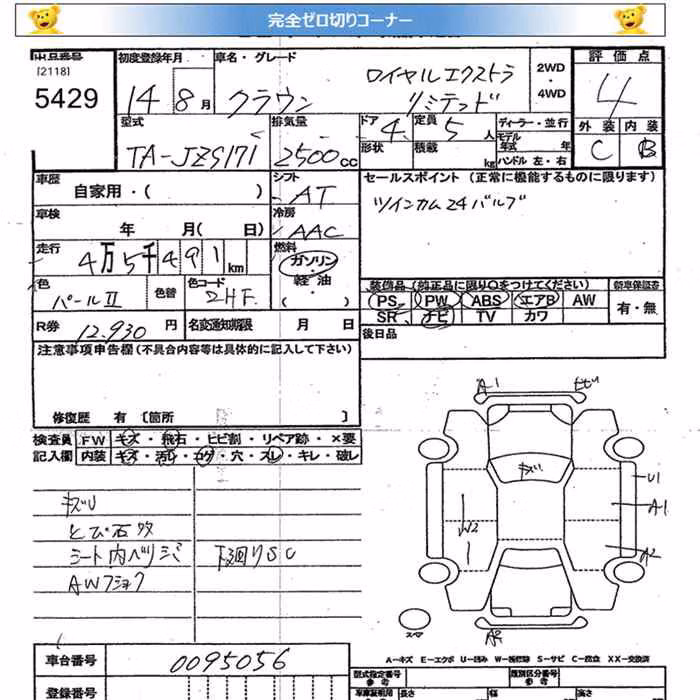 完全ゼロ切りコーナー
出品番号
[2118]
5429
初度登録年月
14 8月
車名・グレード
クラウン
ロイヤルエクストラ
リミテッド
2WD
・
4WD
評価点
4
外装 内装
C B
型式
TA-JZS171
排気量
2500cc
ドア 4
形状
定員 5人
積載 kg
ディーラー・並行
モデル年式 年
ハンドル 左・右
車歴
自家用・( )
シフト
AT
セールスポイント(正常に機能するものに限ります)
ツインカム24バルブ
車検
年 月( 日)
冷房
AAC
走行
4万5千491km
燃料
ガソリン
・
軽油
・
( )
色
パールⅡ
色替
色コード
2HF
装備品(純正品に限り○をつけてください)
新車保証書
PS PW ABS エアB AW
SR ナビ TV カワ
有・無
R券 12,930円
名変通知期限 月 日
後日品
注意事項申告欄(不具合内容等は具体的に記入して下さい)
修復歴 有〔箇所 〕
検査員
記入欄
FW キズ・飛石・ヒビ割・リペア跡・×要
内装 キズ・汚レ・コゲ・穴・スレ・キレ・破レ
キズU
とび石多
シート内ヘリシミ
下廻りSC
AWフショク
A-1
キズ
U1
A-1
W2
A2
スペア
A2
A-キズ E-エクボ U-凹み W-板修跡 S-サビ C-腐食 XX-交換済
車台番号
0095056
登録番号
型式指定番号
参考
類別区分番号
参考
車庫証明用
長さ
幅
高さ